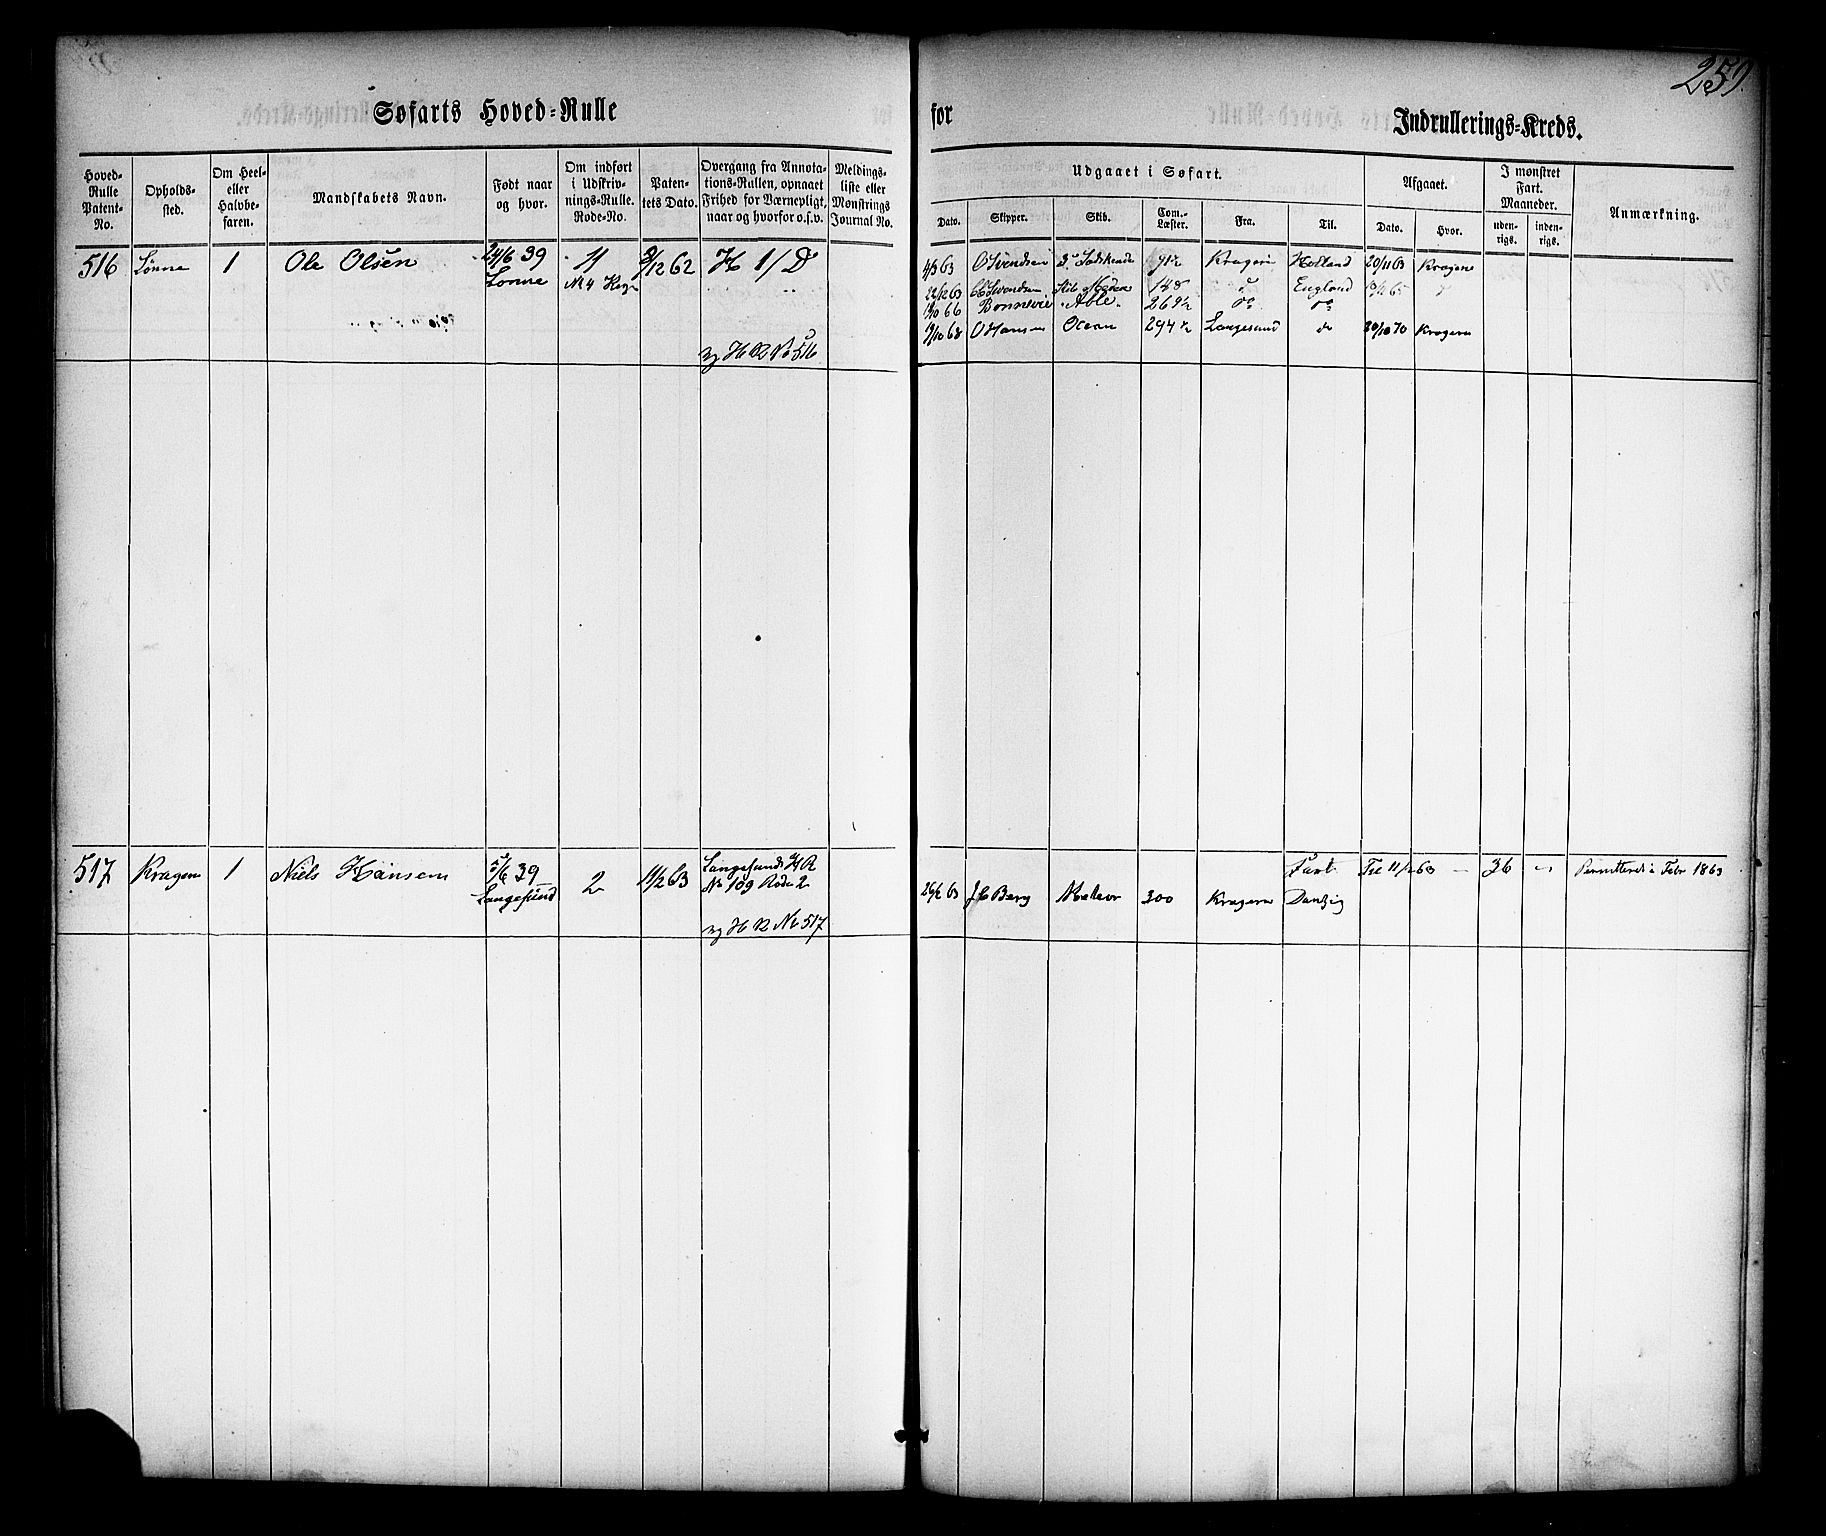 259.
Søfarts Hoved-Rulle for Indrullerings-Kreds.
Hoved-Rulle Patent-No.
Opholds-sted.
Om Heel- eller Halvbe-faren.
Mandskabets Navn.
Født naar og hvor.
Om indført i Udskriv-nings-Rulle. Rode-No.
Paten-tets Dato.
Overgang fra Annota-tions-Rullen, opnaaet Frihed for Værnepligt, naar og hvorfor o.s.v.
Meldings-liste eller Mønstrings Journal No.
Udgaaet i Søfart.
Dato. Skipper. Skib. Com.-Læster. Fra. Til.
Afgaaet.
Dato. Hvor.
I mønstret Fart. Maaneder.
uden-rigs. inden-rigs.
Anmærkning.
516 Lønne 1 Ole Olsen 24/6 39 11 9/12 62 H 1/D
Lønne No 4
ny H R No 516
4/3 63 O Svendsen 91½ Kragerø Holland 20/11 63 Kragerø
22/12 63 Svendsen 148 England
19/10 66 Bonnevie Able 269½ do do
19/10 68 O Hansen Ocean 294½ Langesund do 20/10 70 Kragerø
517 Kragerø 1 Niels Hansen 5/6 39 2 11/2 63 Langesunds H R
Langesund No 109 Rode 2
ny H R No 517
Fart Til 11/2 63 — 36 — Permitteret i Febr 1863
26/2 63 J C Berg Meteor 300 Kragerø Danzig